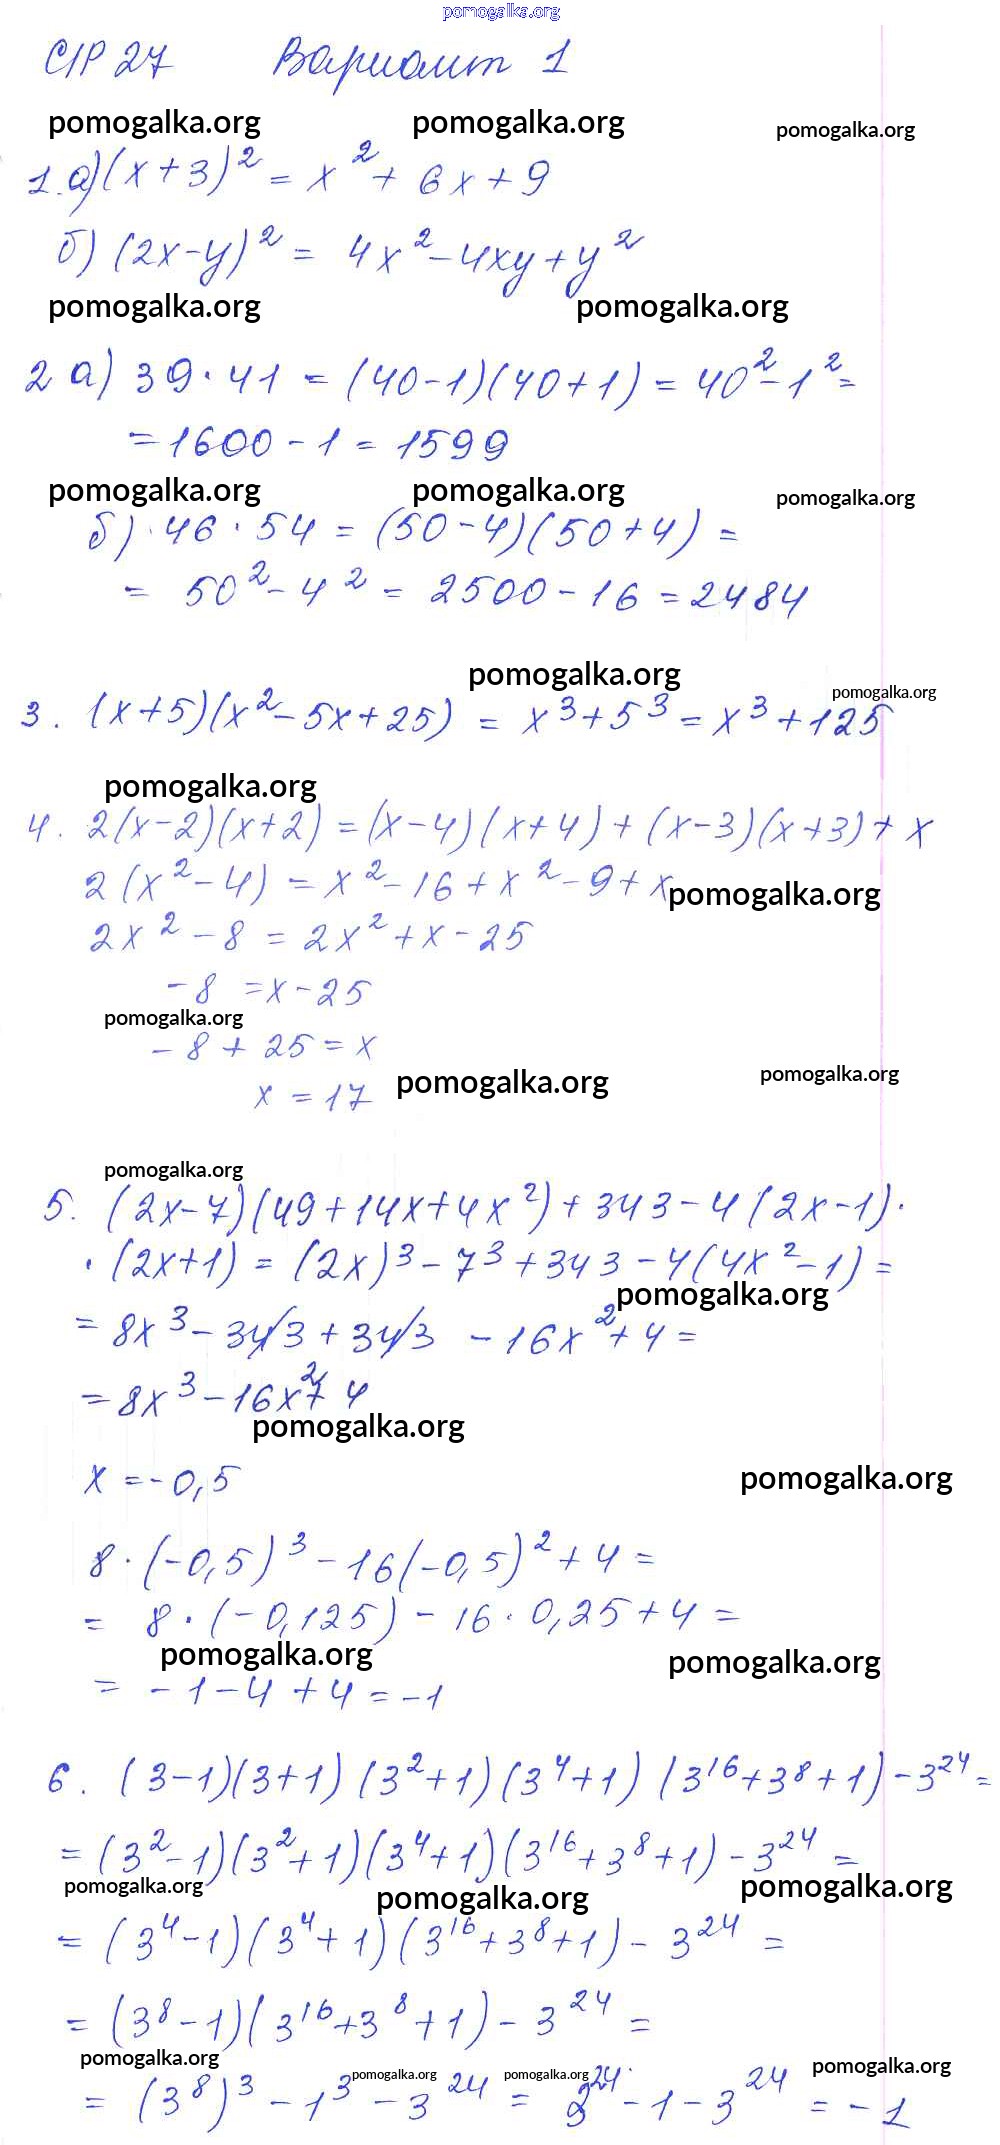 pomogalka.org
С/Р 27 Вариант 1
pomogalka.org pomogalka.org pomogalka.org
1. а) (x+3)² = x² + 6x + 9
б) (2x-y)² = 4x² - 4xy + y²
pomogalka.org pomogalka.org
2 а) 39·41 = (40-1)(40+1) = 40² - 1² =
= 1600 - 1 = 1599
pomogalka.org pomogalka.org pomogalka.org
б) · 46 · 54 = (50-4)(50+4) =
= 50² - 4² = 2500 - 16 = 2484
pomogalka.org pomogalka.org
3. (x+5)(x² - 5x + 25) = x³ + 5³ = x³ + 125
pomogalka.org
4. 2(x-2)(x+2) = (x-4)(x+4) + (x-3)(x+3) + x
2(x² - 4) = x² - 16 + x² - 9 + x
pomogalka.org
2x² - 8 = 2x² + x - 25
-8 = x - 25
pomogalka.org
-8 + 25 = x
pomogalka.org pomogalka.org
x = 17
pomogalka.org
5. (2x-7)(49+14x+4x²) + 343 - 4(2x-1)·
·(2x+1) = (2x)³ - 7³ + 343 - 4(4x² - 1) =
pomogalka.org
= 8x³ - 343 + 343 - 16x² + 4 =
= 8x³ - 16x² + 4
pomogalka.org
x = -0,5
pomogalka.org
8·(-0,5)³ - 16(-0,5)² + 4 =
= 8·(-0,125) - 16·0,25 + 4 =
pomogalka.org pomogalka.org
= -1 - 4 + 4 = -1
6. (3-1)(3+1)(3²+1)(3⁴+1)(3¹⁶+3⁸+1) - 3²⁴ =
= (3²-1)(3²+1)(3⁴+1)(3¹⁶+3⁸+1) - 3²⁴ =
pomogalka.org pomogalka.org pomogalka.org
= (3⁴-1)(3⁴+1)(3¹⁶+3⁸+1) - 3²⁴ =
= (3⁸-1)(3¹⁶+3⁸+1) - 3²⁴ =
pomogalka.org pomogalka.org pomogalka.org pomogalka.org
= (3⁸)³ - 1³ - 3²⁴ = 3²⁴ - 1 - 3²⁴ = -1